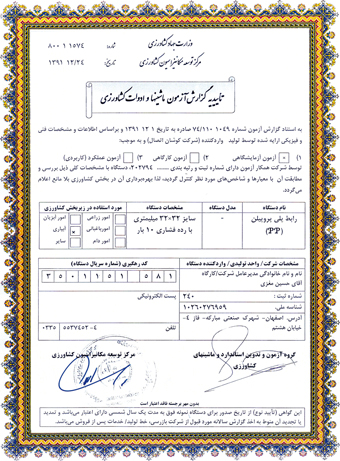 وزارت جهاد کشاورزی
مرکز توسعه مکانیزاسیون کشاورزی
شماره: ۸۰۰۱۱۵۷۴
تاریخ: ۱۳۹۱/۱۲/۲۴
تاییدیه گزارش آزمون ماشینها و ادوات کشاورزی
به استناد گزارش آزمون شماره ۷۴/۱۱۰۱۰۴۹ صادره به تاریخ ۱۳۹۱ ۱۲ ۱ و براساس اطلاعات و مشخصات فنی
و فیزیکی ارایه شده توسط تولید / واردکننده (شرکت کوشان اتصال) و به موجب:
۱) آزمون آزمایشگاهی ۲) آزمون کارگاهی ۳) آزمون عملکرد (کاربردی)
توسط شرکت همکار آزمون دارای شماره ثبت و رتبه بندی ۲۰۲۷۹۴، دستگاه با مشخصات کلی ذیل بررسی و
مطابقت آن با معیارها و شاخص‌های مورد نظر کنترل گردید، لذا بهره‌برداری آن در بخش کشاورزی بلا مانع اعلام
می‌گردد.
نام دستگاه
مدل دستگاه
مشخصات دستگاه
مورد استفاده در زیربخش کشاورزی
رابط پلی پروپیلن
(PP)
-
سایز ۳۲×۳۲ میلیمتری
با رده فشاری ۱۰ بار
امور زراعی
امور آبزیان
امور باغبانی
آبیاری
امور دام
سایر
مشخصات شرکت / واحد تولیدی / واردکننده دستگاه
کد رهگیری (شماره سریال دستگاه)
نام و نام خانوادگی مدیرعامل شرکت/کارگاه
آقای حسین مغزی
3 5 0 1 1 5 1 5 8 1
شماره ثبت: ۲۴۰
پست الکترونیکی
شناسه ملی: ۱۰۲۶۰۲۷۶۹۵۹
آدرس: اصفهان- شهرک صنعتی مبارکه- فاز ۴-
خیابان هشتم
تلفن ۴-۵۵۳۷۴۵۲ ۰۳۳۵
گروه آزمون و تدوین استاندارد و ماشینهای
کشاورزی
مرکز توسعه مکانیزاسیون کشاورزی
بدون مهر برجسته فاقد اعتبار است
این گواهی (تأیید نوع) از تاریخ صدور برای دستگاه نمونه فوق به مدت یک سال شمسی دارای اعتبار می‌باشد و تمدید
یا تجدید آن منوط به اخذ گزارش سالانه مورد قبول از شرکت بازرسی، خط تولید/ خدمات پس از فروش می‌باشد.